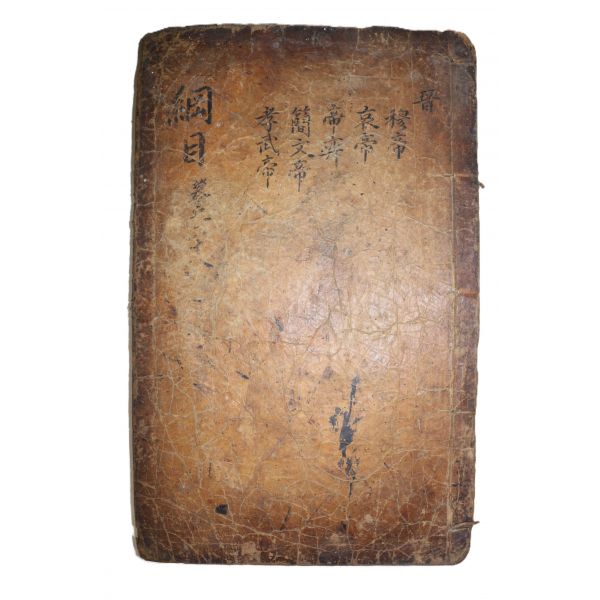 晉
穆帝
哀帝
帝奕
簡文帝
孝武帝
綱目